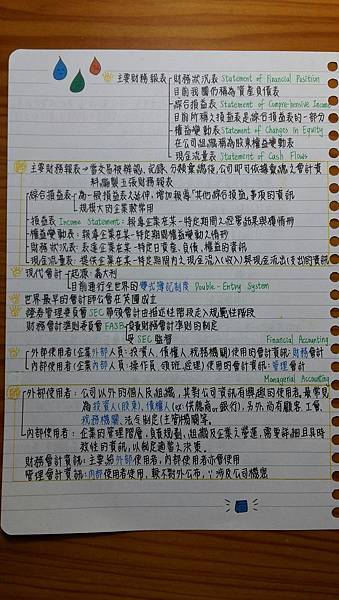 主要財務報表 財務狀況表 Statement of Financial Position
目前我國仍稱為資產負債表
綜合損益表 Statement of Comprehensive Income
目前所稱之損益表是綜合損益表的一部分
權益變動表 Statement of Changes in Equity
在公司組織稱為股東權益變動表
現金流量表 Statement of Cash Flows
主要財務報表→當交易被辨認、記錄、分類彙總後,公司即可依據彙總之會計資
料編製五張財務報表
綜合損益表:為一般損益表之延伸,增加報導「其他綜合損益」事項的資訊
規模大的企業較常用
損益表 Income Statement:報導企業在某一特定期間之經營結果與獲利情形
權益變動表:報導企業在某一特定期間權益變動之情形
財務狀況表:表達企業在某一特定日資產、負債、權益的資訊
現金流量表:提供企業在某一特定期間內之現金流入(收入)與現金流出(支出)的資訊
現代會計 起源:義大利
目前通行全世界的雙式簿記制度 Double-Entry System
世界最早的會計師公會在英國成立
證券管理委員會 SEC 帶領會計由描述性階段走入規範性階段
財務會計準則委員會 FASB 負責財務會計準則的制定
受 SEC 監督
Financial Accounting
外部使用者(企業外部人員:投資人、債權人、稅務機關)使用的會計資訊:財務會計
內部使用者(企業內部人員:操作員、領班、經理)使用的會計資訊:管理會計
Managerial Accounting
外部使用者:公司以外的個人及組織,其對公司資訊有興趣的使用者。最常見
為投資人(股東)、債權人(ex:供應商、銀行),另外,尚有顧客、工會、
稅務機關、法令制定(主管)機關等。
內部使用者:企業的管理階層,負責規劃、組織及企業之營運,需要詳細且具時
效性的資訊,以制定適當之決策。
財務會計資訊:主要給外部使用者,內部使用者亦會使用
管理會計資訊:內部使用者使用,較不對外公布,∵涉及公司機密